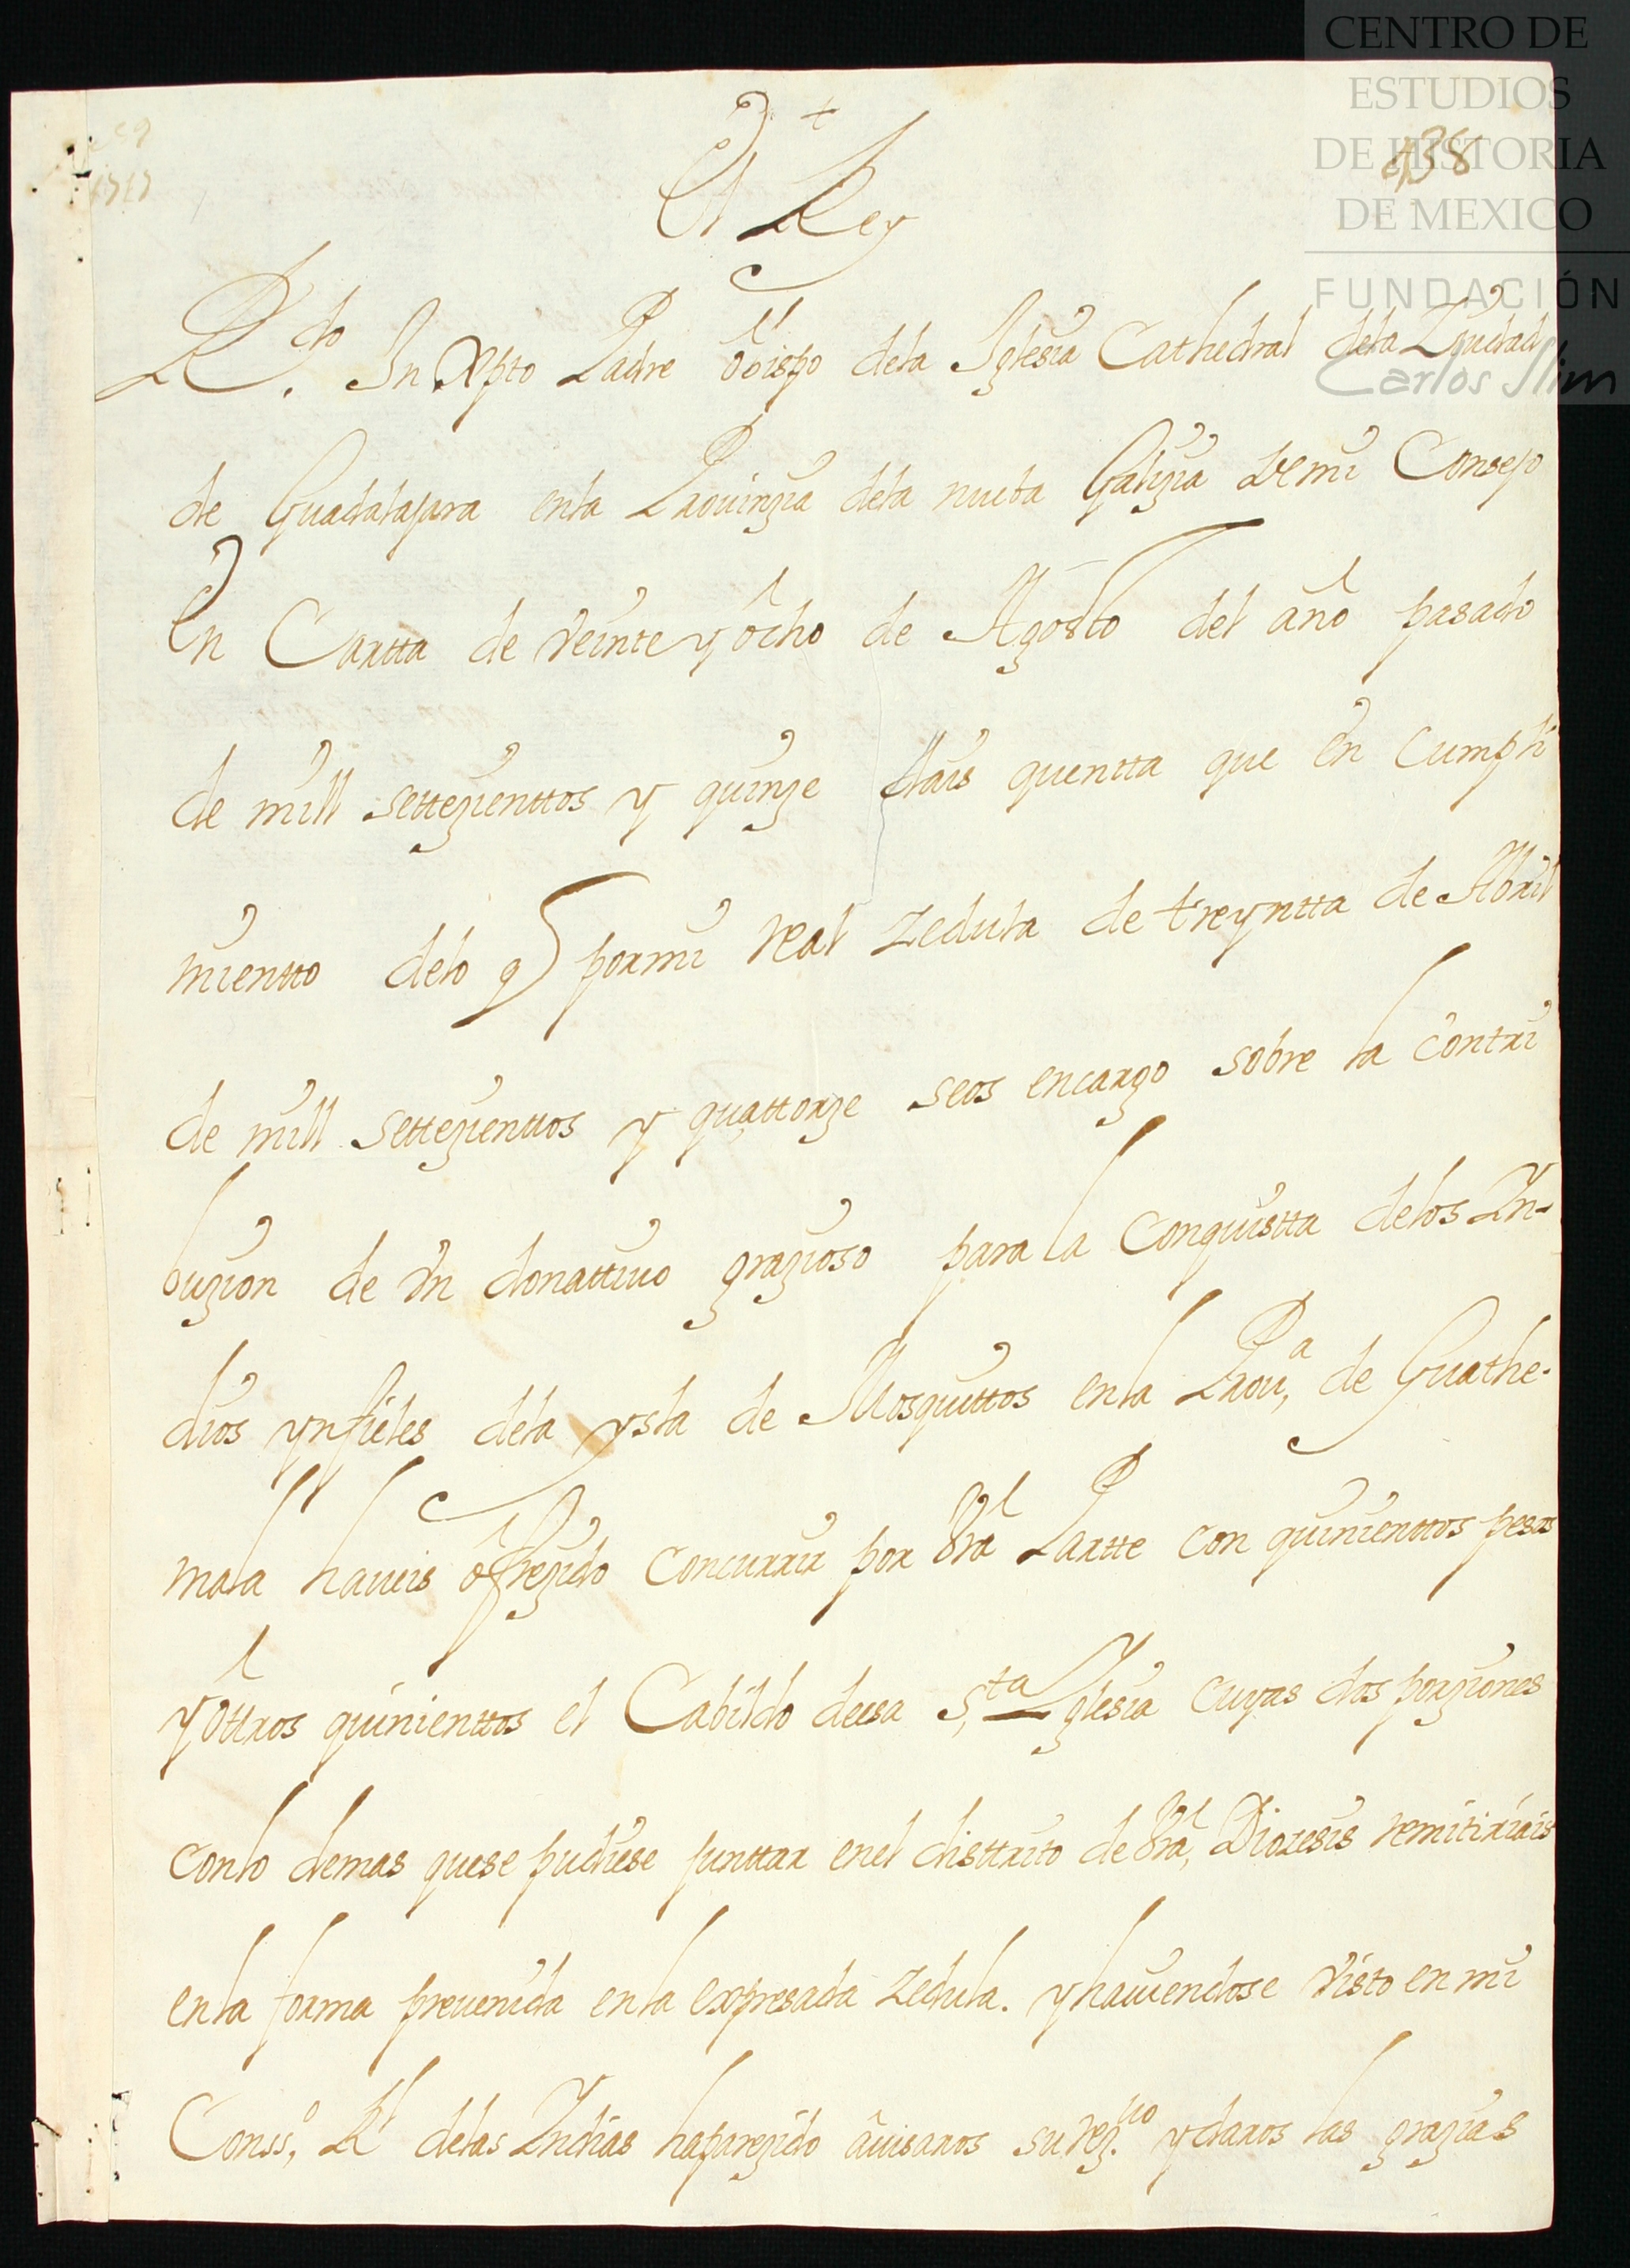 CENTRO DE
ESTUDIOS
DE HISTORIA
DE MEXICO
FUNDACIÓN
Carlos Slim
438
+
El Rey
R.do In Xpto Padre obispo dela Iglesia Cathedral dela Ziudad
de Guadalajara enla Prouinzia dela nueba Galizia de mi Consejo
En Cartta de veinte y ocho de Agosto del año pasado
de mill settezienttos y quinze dais quentta que en cumpli
mientto delo q por mi real zedula de treyntta de Abril
de mill settezienttos y quattorze seos encargo sobre la contri
buzion de vn donattiuo grazioso para la Conquistta delos Yn-
dios ynfieles dela ysla de Mosquittos enla Prou,a de Guathe-
mala haueis ofrezido concurrir por vra Partte con quinienttos pesos
y ottros quinienttos el Cabildo deesa S,ta Yglesia cuyas dos porziones
conlo demas quese pudiese junttar enel disttrito de vra, Diozesis remitiriais
enla forma preuenida enla expresada zedula. y hauiendose visto en mi
Conss,o Rl delas Yndias haparezido auisaros su rez.uo y daros las grazias